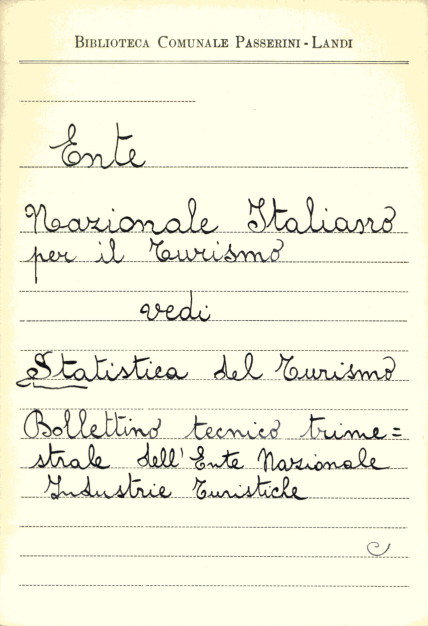 BIBLIOTECA COMUNALE PASSERINI - LANDI
Ente
Nazionale Italiano
per il Turismo
vedi
Statistica del Turismo
Bollettino tecnico trime=
strale dell'Ente Nazionale
Industrie Turistiche